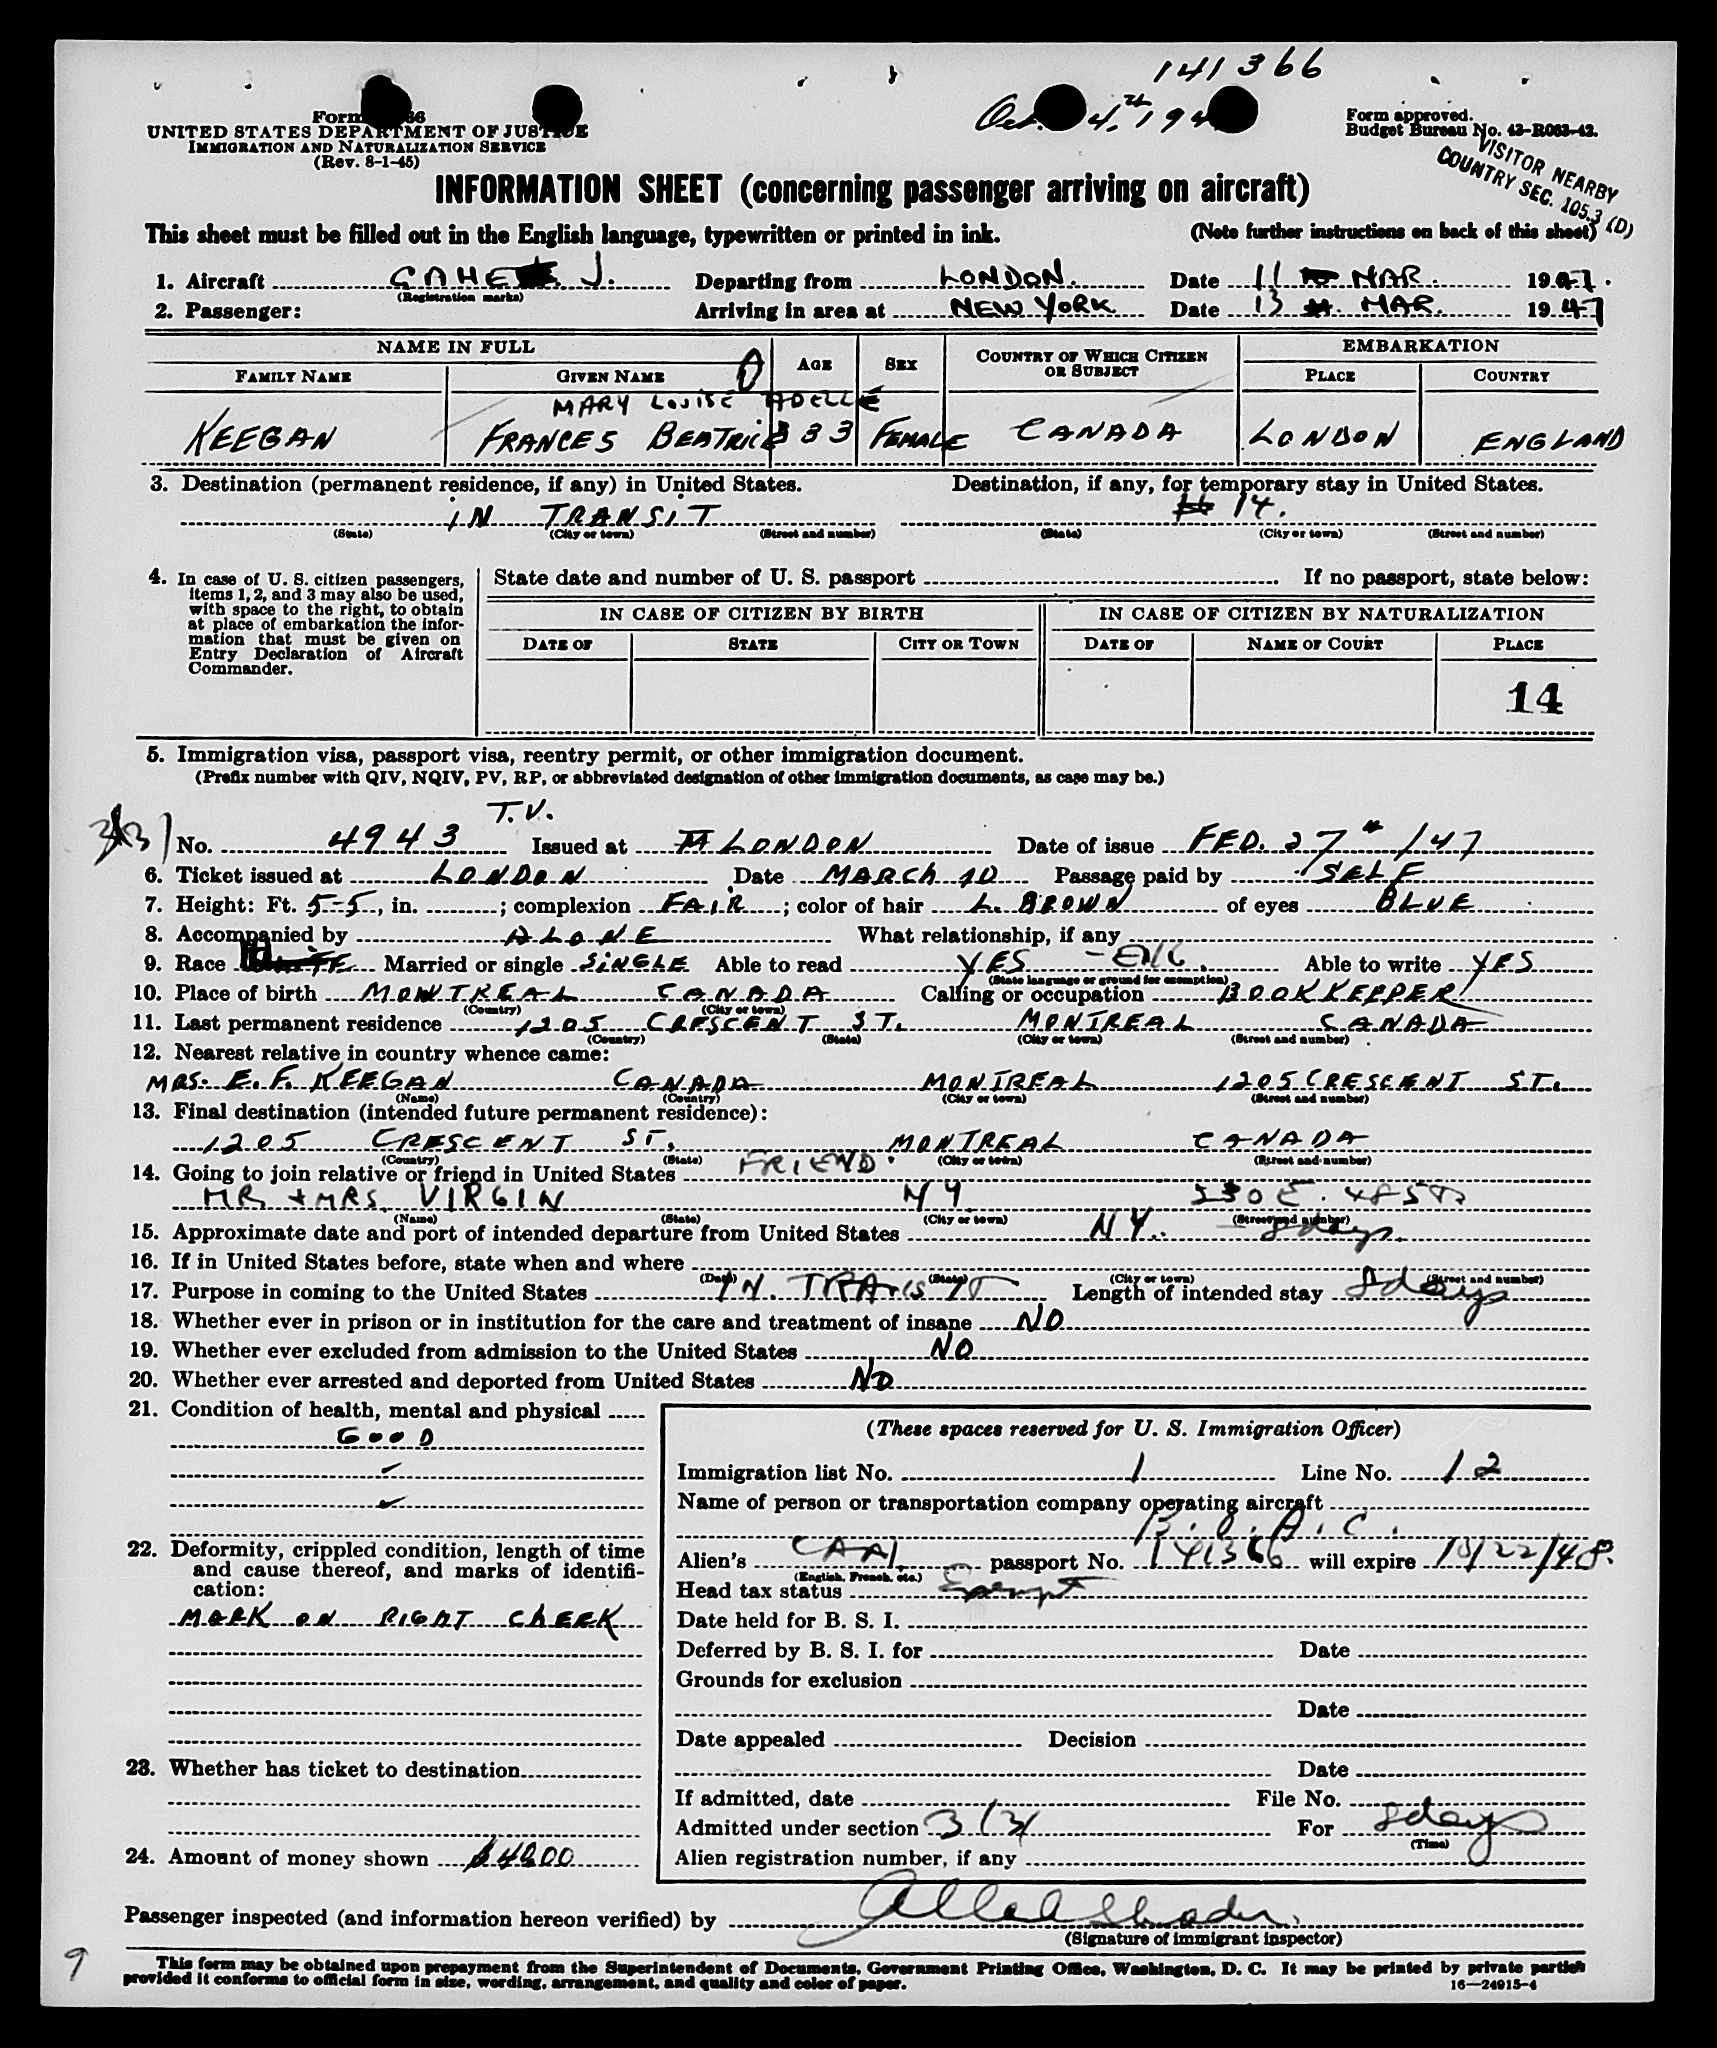 141366
Form 66
Oct. 4th, 194
Form approved.
Budget Bureau No. 43-R063-42.
UNITED STATES DEPARTMENT OF JUSTICE
IMMIGRATION AND NATURALIZATION SERVICE
(Rev. 8-1-45)
VISITOR NEARBY
COUNTRY SEC. 105.3 (D)
INFORMATION SHEET (concerning passenger arriving on aircraft)
This sheet must be filled out in the English language, typewritten or printed in ink. (Note further instructions on back of this sheet)
1. Aircraft GAHE J. Departing from LONDON. Date 11 MAR. 1947.
(Registration marks)
2. Passenger: Arriving in area at NEW YORK Date 13 MAR. 1947
NAME IN FULL AGE SEX COUNTRY OF WHICH CITIZEN OR SUBJECT EMBARKATION
FAMILY NAME GIVEN NAME PLACE COUNTRY
MARY LOUISE ADELLE
KEEGAN FRANCES BEATRICE 33 FEMALE CANADA LONDON ENGLAND
3. Destination (permanent residence, if any) in United States. Destination, if any, for temporary stay in United States.
IN TRANSIT 14.
(State) (City or town) (Street and number) (State) (City or town) (Street and number)
4. In case of U. S. citizen passengers, items 1, 2, and 3 may also be used, with space to the right, to obtain at place of embarkation the information that must be given on Entry Declaration of Aircraft Commander.
State date and number of U. S. passport If no passport, state below:
IN CASE OF CITIZEN BY BIRTH IN CASE OF CITIZEN BY NATURALIZATION
DATE OF STATE CITY OR TOWN DATE OF NAME OF COURT PLACE
14
5. Immigration visa, passport visa, reentry permit, or other immigration document.
(Prefix number with QIV, NQIV, PV, RP, or abbreviated designation of other immigration documents, as case may be.)
T.V.
No. 4943 Issued at LONDON Date of issue FEB. 27th /47
6. Ticket issued at LONDON Date MARCH 10 Passage paid by SELF
7. Height: Ft. 5-5, in. ; complexion FAIR ; color of hair L. BROWN of eyes BLUE
8. Accompanied by ALONE What relationship, if any
9. Race Married or single SINGLE Able to read YES - ENG. Able to write YES
(State language or ground for exemption)
10. Place of birth MONTREAL CANADA Calling or occupation BOOKKEEPER
(Country) (City or town)
11. Last permanent residence 1205 CRESCENT ST. MONTREAL CANADA
(Country) (State) (City or town) (Street and number)
12. Nearest relative in country whence came:
MRS. E. F. KEEGAN CANADA MONTREAL 1205 CRESCENT ST.
(Name) (Country) (City or town) (Street and number)
13. Final destination (intended future permanent residence):
1205 CRESCENT ST. MONTREAL CANADA
(Country) (State) (City or town) (Street and number)
14. Going to join relative or friend in United States FRIEND.
MR + MRS. VIRGIN NY E. 48 ST
(Name) (State) (City or town) (Street and number)
15. Approximate date and port of intended departure from United States N Y. - 8 days.
16. If in United States before, state when and where
(Date) (State) (City or town) (Street and number)
17. Purpose in coming to the United States IN TRANSIT Length of intended stay 8 days
18. Whether ever in prison or in institution for the care and treatment of insane NO
19. Whether ever excluded from admission to the United States NO
20. Whether ever arrested and deported from United States NO
21. Condition of health, mental and physical
GOOD
22. Deformity, crippled condition, length of time and cause thereof, and marks of identification:
MARK ON RIGHT CHEEK
23. Whether has ticket to destination
24. Amount of money shown
(These spaces reserved for U. S. Immigration Officer)
Immigration list No. 1 Line No. 12
Name of person or transportation company operating aircraft
B.O.A.C.
Alien's CAN. passport No. 141366 will expire 10/22/48.
(English, French, etc.)
Head tax status Exempt
Date held for B. S. I.
Deferred by B. S. I. for Date
Grounds for exclusion
Date
Date appealed Decision
Date
If admitted, date File No.
Admitted under section 3(3) For 8 days
(Time)
Alien registration number, if any
Passenger inspected (and information hereon verified) by
(Signature of immigrant inspector)
9
This form may be obtained upon prepayment from the Superintendent of Documents, Government Printing Office, Washington, D. C. It may be printed by private parties
provided it conforms to official form in size, wording, arrangement, and quality and color of paper. 16—24915-4